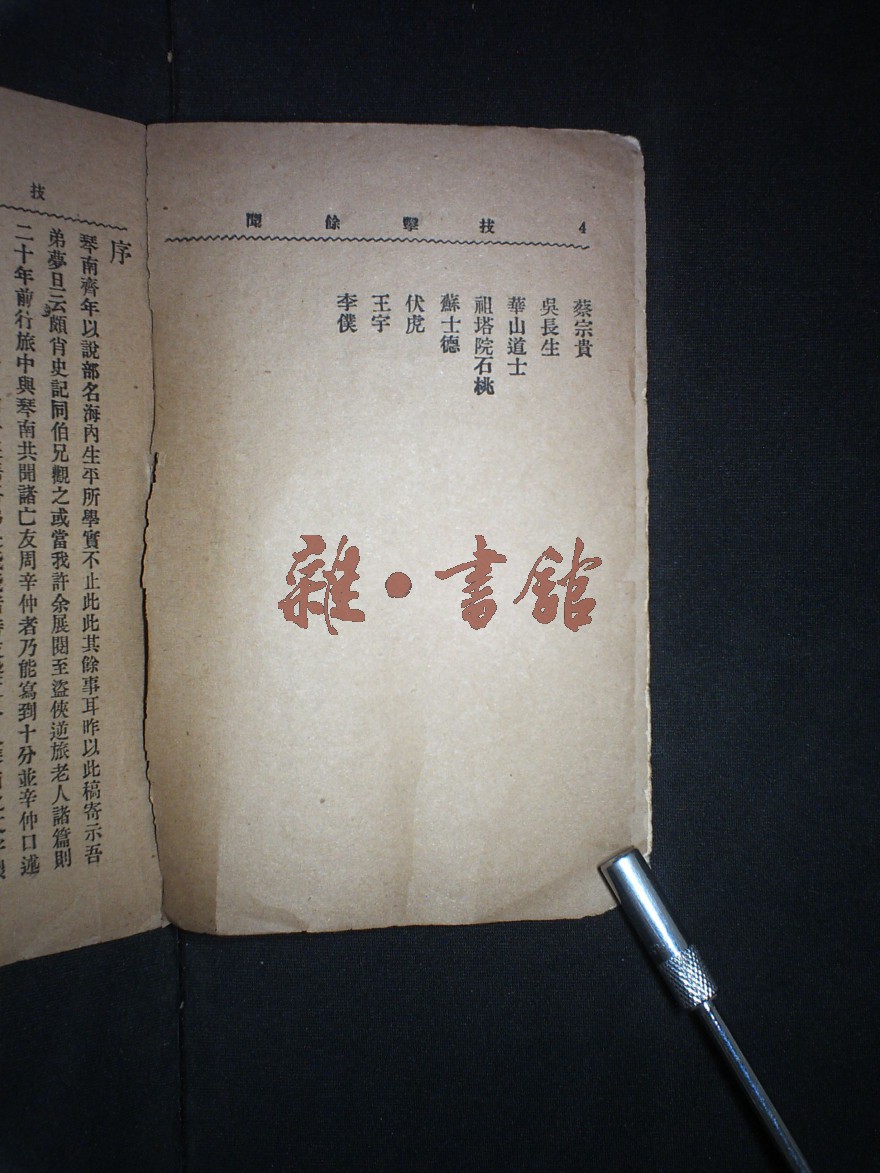 4 技擊餘聞
蔡宗貴
吳長生
華山道士
祖塔院石桃
蘇士德
伏虎
王宇
李僕
雜•書館
技
序
琴南齊年以說部名海內生平所學實不止此此其餘事耳昨以此稿寄示吾
弟夢旦云頗肖史記同伯兄觀之或當我許余展閱至盜俠逆旅老人諸篇則
二十年前行旅中與琴南共聞諸亡友周辛仲者乃能寫到十分並辛仲口述